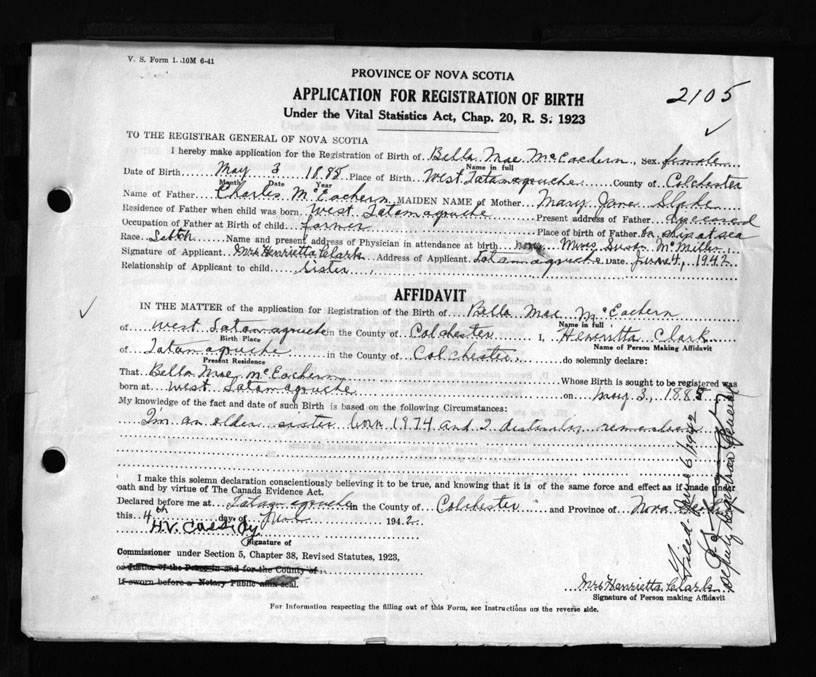 V. S. Form 1. 10M 6-41
PROVINCE OF NOVA SCOTIA
APPLICATION FOR REGISTRATION OF BIRTH
2105
Under the Vital Statistics Act, Chap. 20, R. S. 1923
TO THE REGISTRAR GENERAL OF NOVA SCOTIA
I hereby make application for the Registration of Birth of Bella Mae McEachern, Sex female
Name in full
Date of Birth May 3 1885 Place of Birth West Tatamagouche County of Colchester
Month Date Year
Name of Father Charles McEachern MAIDEN NAME of Mother Mary Jane
Residence of Father when child was born West Tatamagouche Present address of Father deceased
Occupation of Father at Birth of child farmer Place of birth of Father on ship at sea
Race Scotch Name and present address of Physician in attendance at birth none
Signature of Applicant Mrs Henrietta Clark Address of Applicant Tatamagouche Date June 4, 1942
Relationship of Applicant to child Sister
AFFIDAVIT
IN THE MATTER of the application for Registration of the Birth of Bella Mae McEachern
Name in full
of West Tatamagouche in the County of Colchester I, Henrietta Clark
Birth Place
Name of Person Making Affidavit
of Tatamagouche in the County of Colchester do solemnly declare:
Present Residence
That Bella Mae McEachern Whose Birth is sought to be registered was
born at West Tatamagouche on May 3, 1885
My knowledge of the fact and date of such Birth is based on the following Circumstances:
I'm an older sister born 1974 and I distinctly remember
I make this solemn declaration conscientiously believing it to be true, and knowing that it is of the same force and effect as if made under
oath and by virtue of The Canada Evidence Act.
Declared before me at Tatamagouche in the County of Colchester and Province of Nova
this 4th day of June 1942
H.V. Cassidy
Signature of
Commissioner under Section 5, Chapter 38, Revised Statutes, 1923,
or Justice of the Peace in and for the County of
If sworn before a Notary Public affix seal.
Mrs Henrietta Clark
Signature of Person making Affidavit
For Information respecting the filling out of this Form, see Instructions on the reverse side.
Filed June 6/1942
Deputy Registrar General